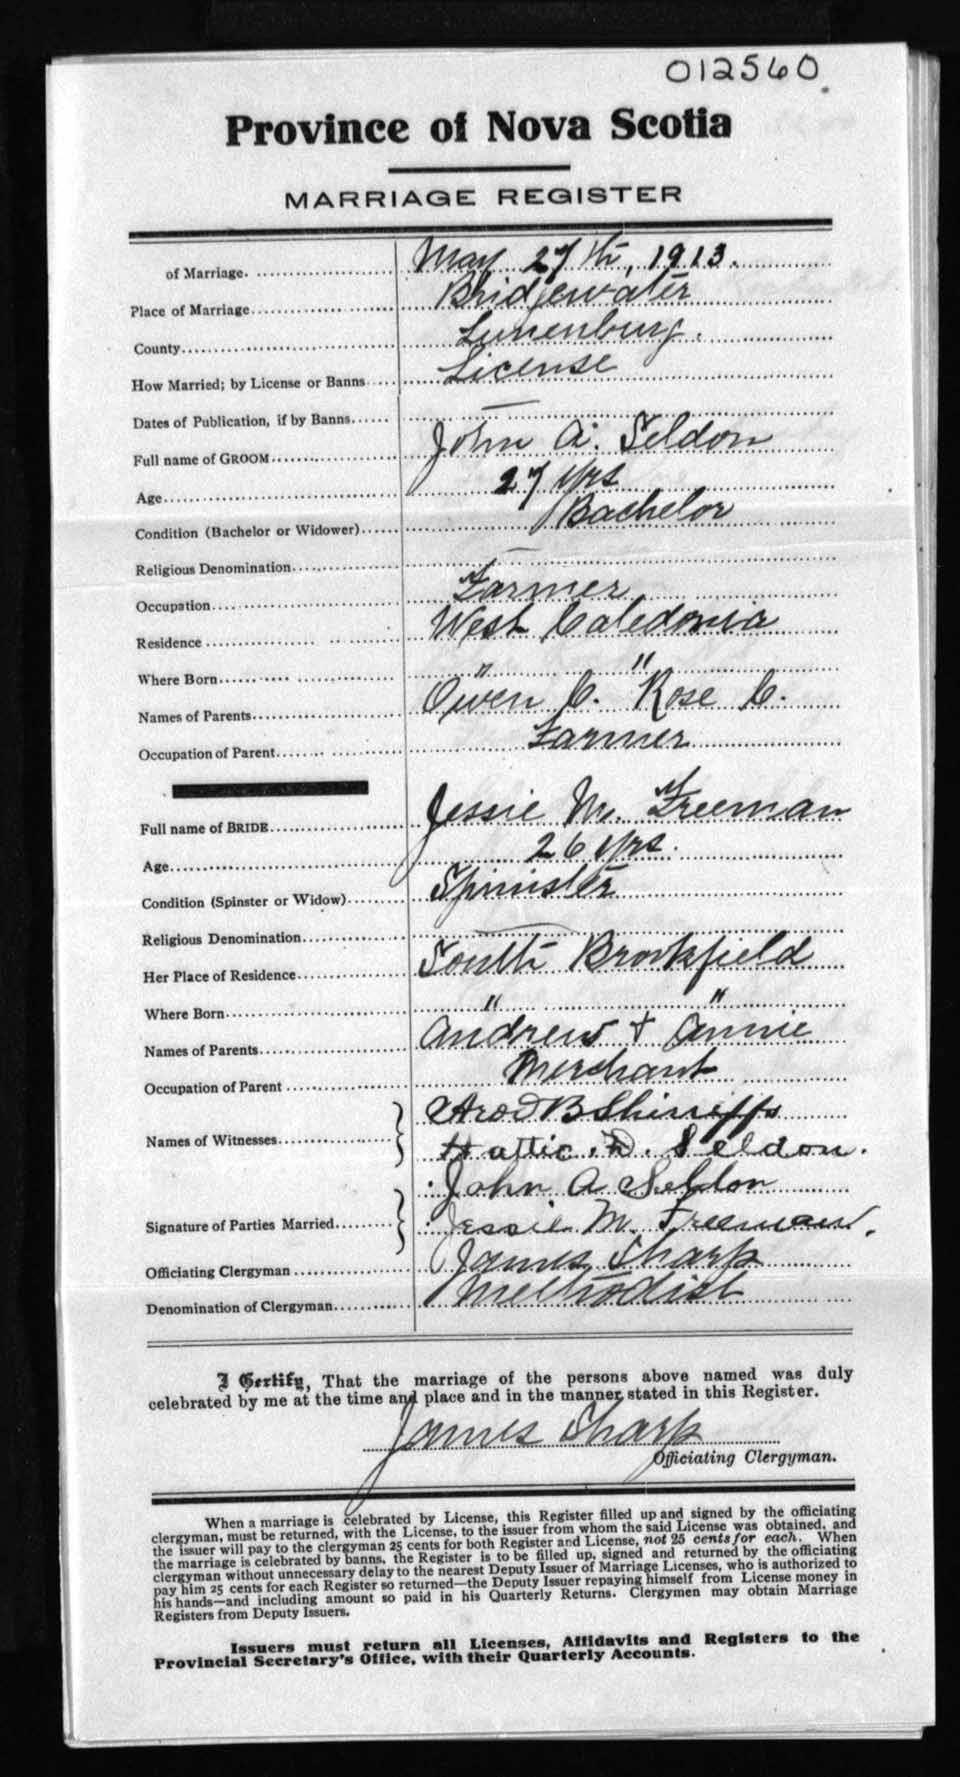 012560
Province of Nova Scotia
MARRIAGE REGISTER
of Marriage. May 27th, 1913.
Place of Marriage Bridgewater
County Lunenburg.
How Married; by License or Banns License
Dates of Publication, if by Banns —
Full name of GROOM John A. Seldon
Age 27 yrs
Condition (Bachelor or Widower) Bachelor
Religious Denomination —
Occupation Farmer
Residence West Caledonia
Where Born " "
Names of Parents Owen C. Rose C.
Occupation of Parent Farmer
Full name of BRIDE Jessie M. Freeman
Age 26 yrs.
Condition (Spinster or Widow) Spinister
Religious Denomination —
Her Place of Residence South Brookfield
Where Born " "
Names of Parents Andrew + Annie
Occupation of Parent Merchant
B Shirreffs
Names of Witnesses Hattie. D. Seldon.
John A Seldon
Signature of Parties Married Jessie M. Freeman.
Officiating Clergyman James Sharp
Denomination of Clergyman Methodist
I Certify, That the marriage of the persons above named was duly
celebrated by me at the time and place and in the manner stated in this Register.
James Sharp
Officiating Clergyman.
When a marriage is celebrated by License, this Register filled up and signed by the officiating
clergyman, must be returned, with the License, to the issuer from whom the said License was obtained, and
the issuer will pay to the clergyman 25 cents for both Register and License, not 25 cents for each. When
the marriage is celebrated by banns, the Register is to be filled up, signed and returned by the officiating
clergyman without unnecessary delay to the nearest Deputy Issuer of Marriage Licenses, who is authorized to
pay him 25 cents for each Register so returned—the Deputy Issuer repaying himself from License money in
his hands—and including amount so paid in his Quarterly Returns. Clergymen may obtain Marriage
Registers from Deputy Issuers.
Issuers must return all Licenses, Affidavits and Registers to the
Provincial Secretary's Office, with their Quarterly Accounts.